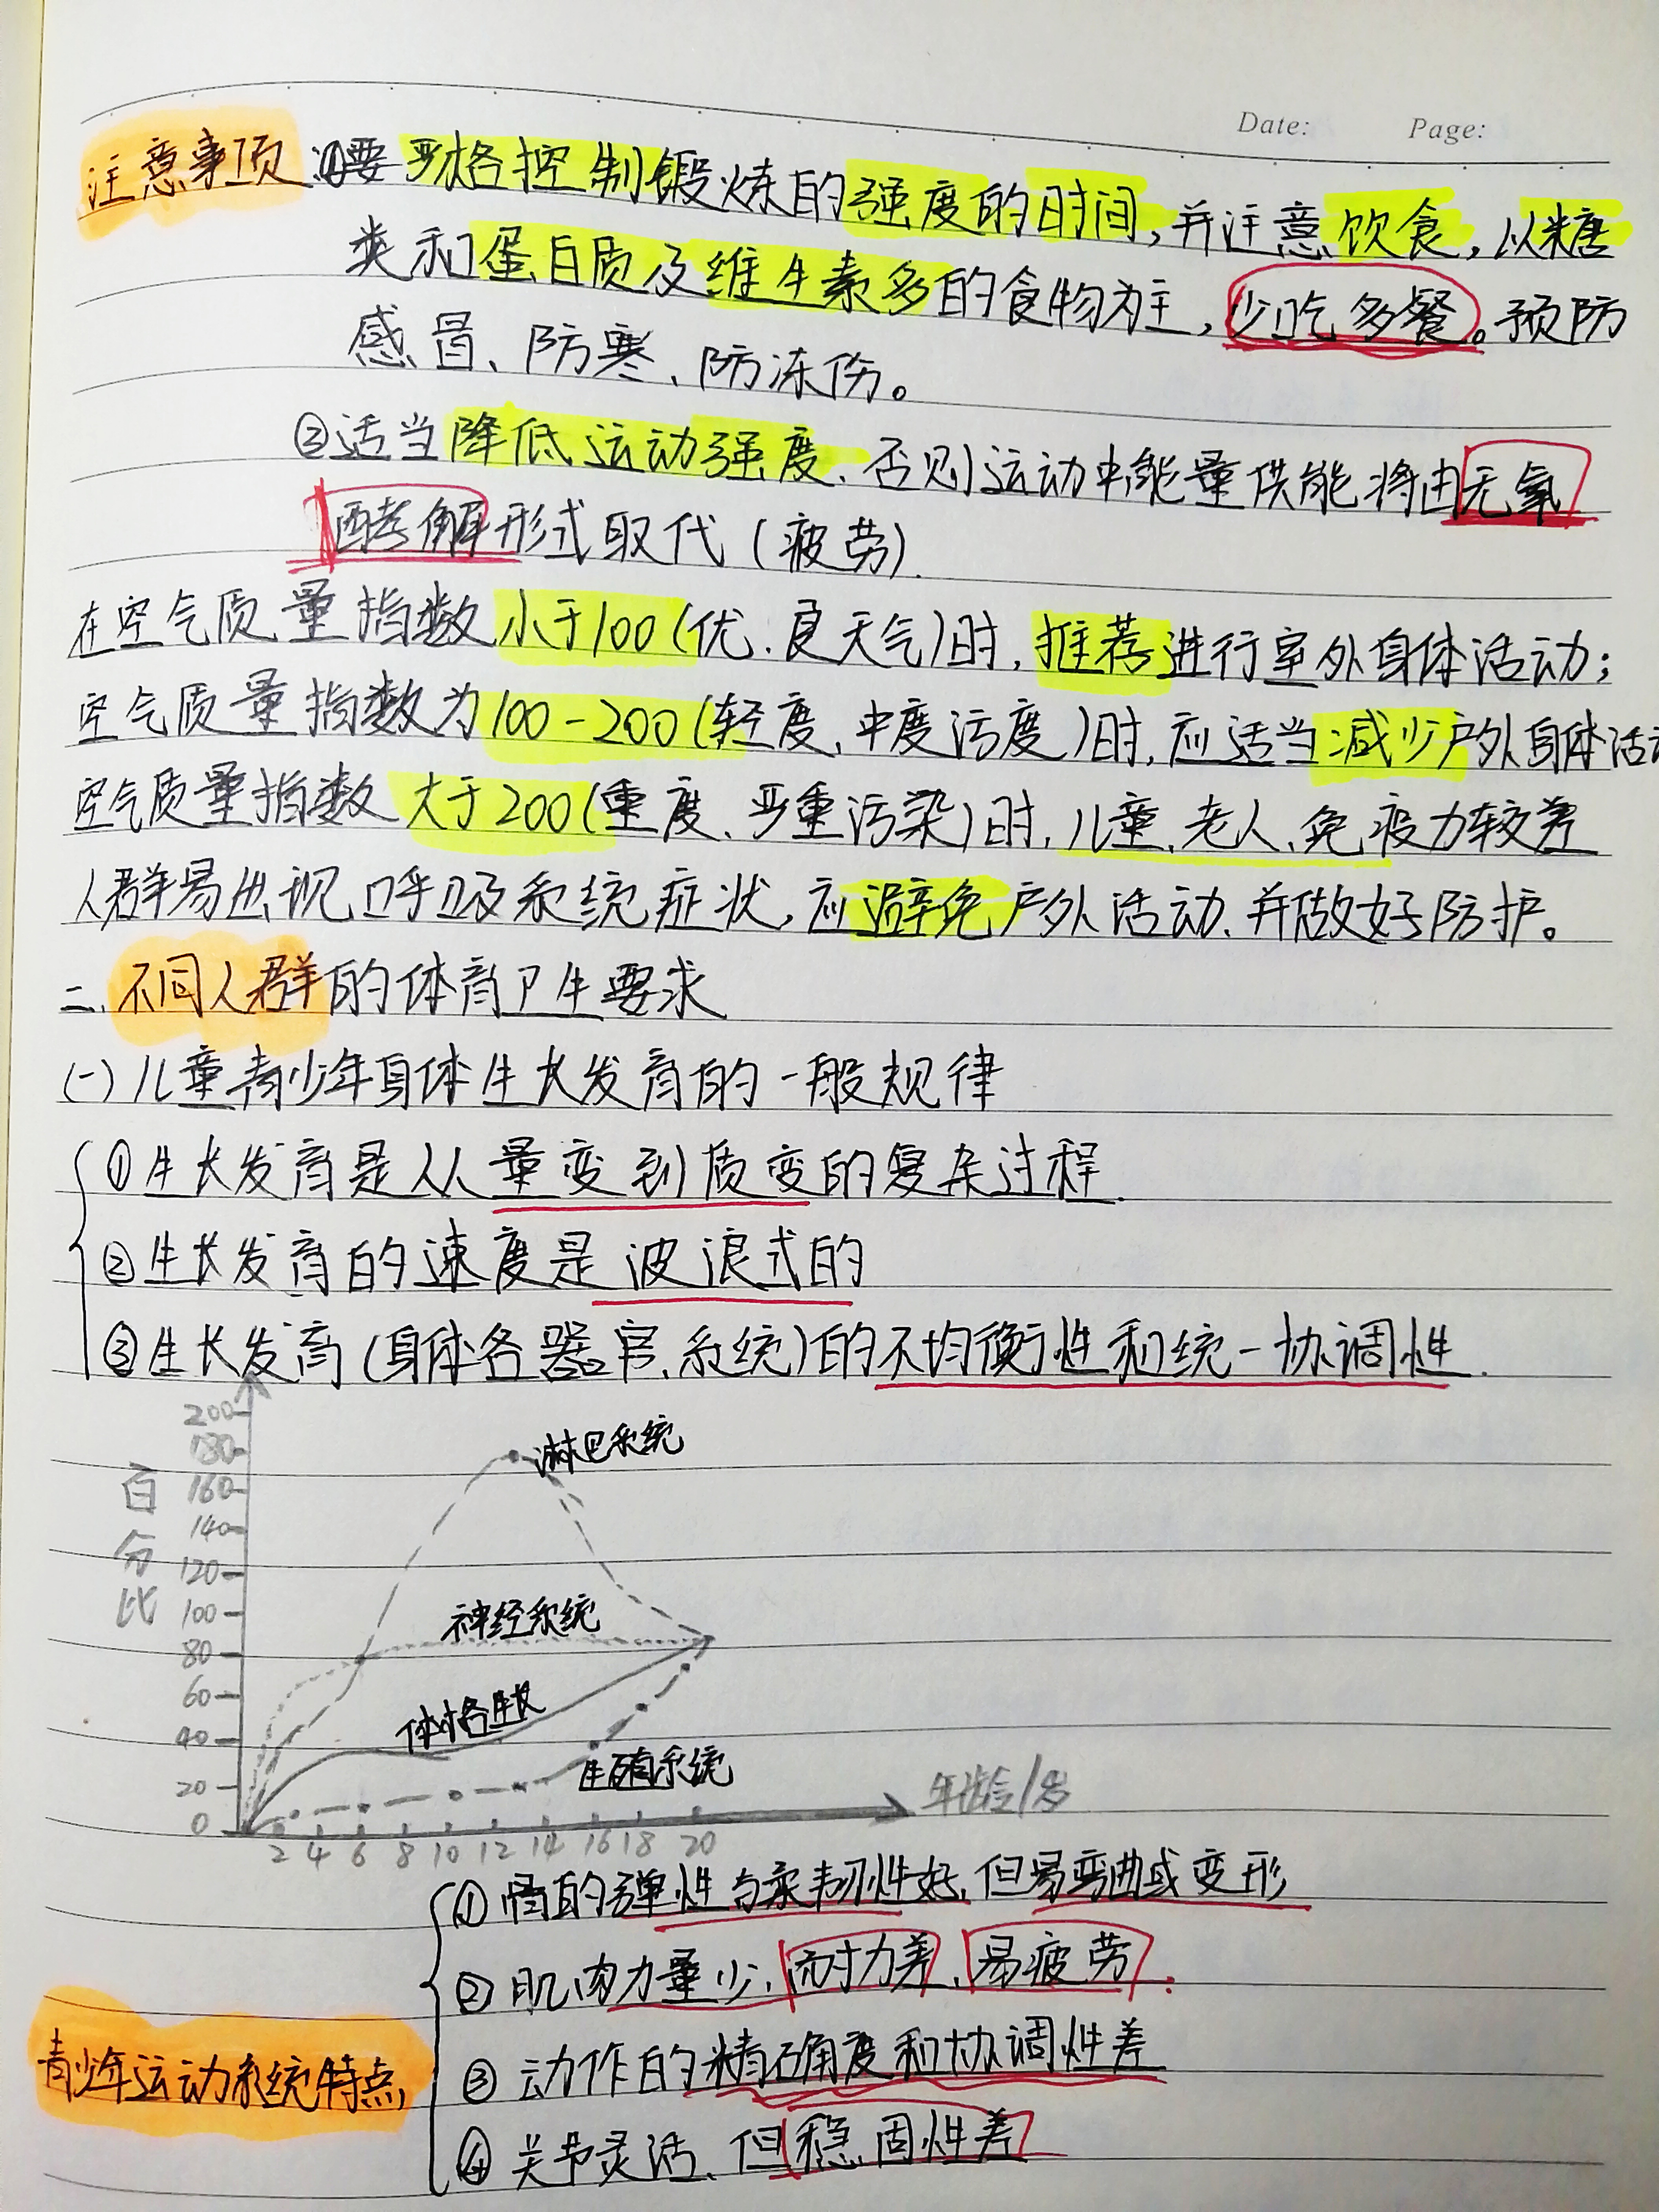 Date: Page:
注意事项:①要严格控制锻炼的强度的时间,并注意饮食,以糖
类和蛋白质及维生素多的食物为主,少吃多餐。预防
感冒、防寒、防冻伤。
②适当降低运动强度、否则运动中能量供能将由无氧
酵解形式取代(疲劳).
在空气质量指数小于100(优、良天气)时,推荐进行室外身体活动;
空气质量指数为100-200(轻度、中度污度)时,应适当减少户外身体活动
空气质量指数大于200(重度、严重污染)时,儿童、老人、免疫力较差
人群易出现呼吸系统症状,应避免户外活动、并做好防护。
二、不同人群的体育卫生要求
(一)儿童青少年身体生长发育的一般规律
①生长发育是从量变到质变的复杂过程.
②生长发育的速度是波浪式的
③生长发育(身体各器官、系统)的不均衡性和统一协调性.
200
180
160
140
120
100
80
60
40
20
0
百分比
淋巴系统
神经系统
体格生长
生殖系统
年龄/岁
2 4 6 8 10 12 14 16 18 20
青少年运动系统特点
①骨的弹性与柔韧性好,但易弯曲或变形
②肌肉力量少,耐力差、易疲劳.
③动作的精确度和协调性差
④关节灵活、但稳固性差